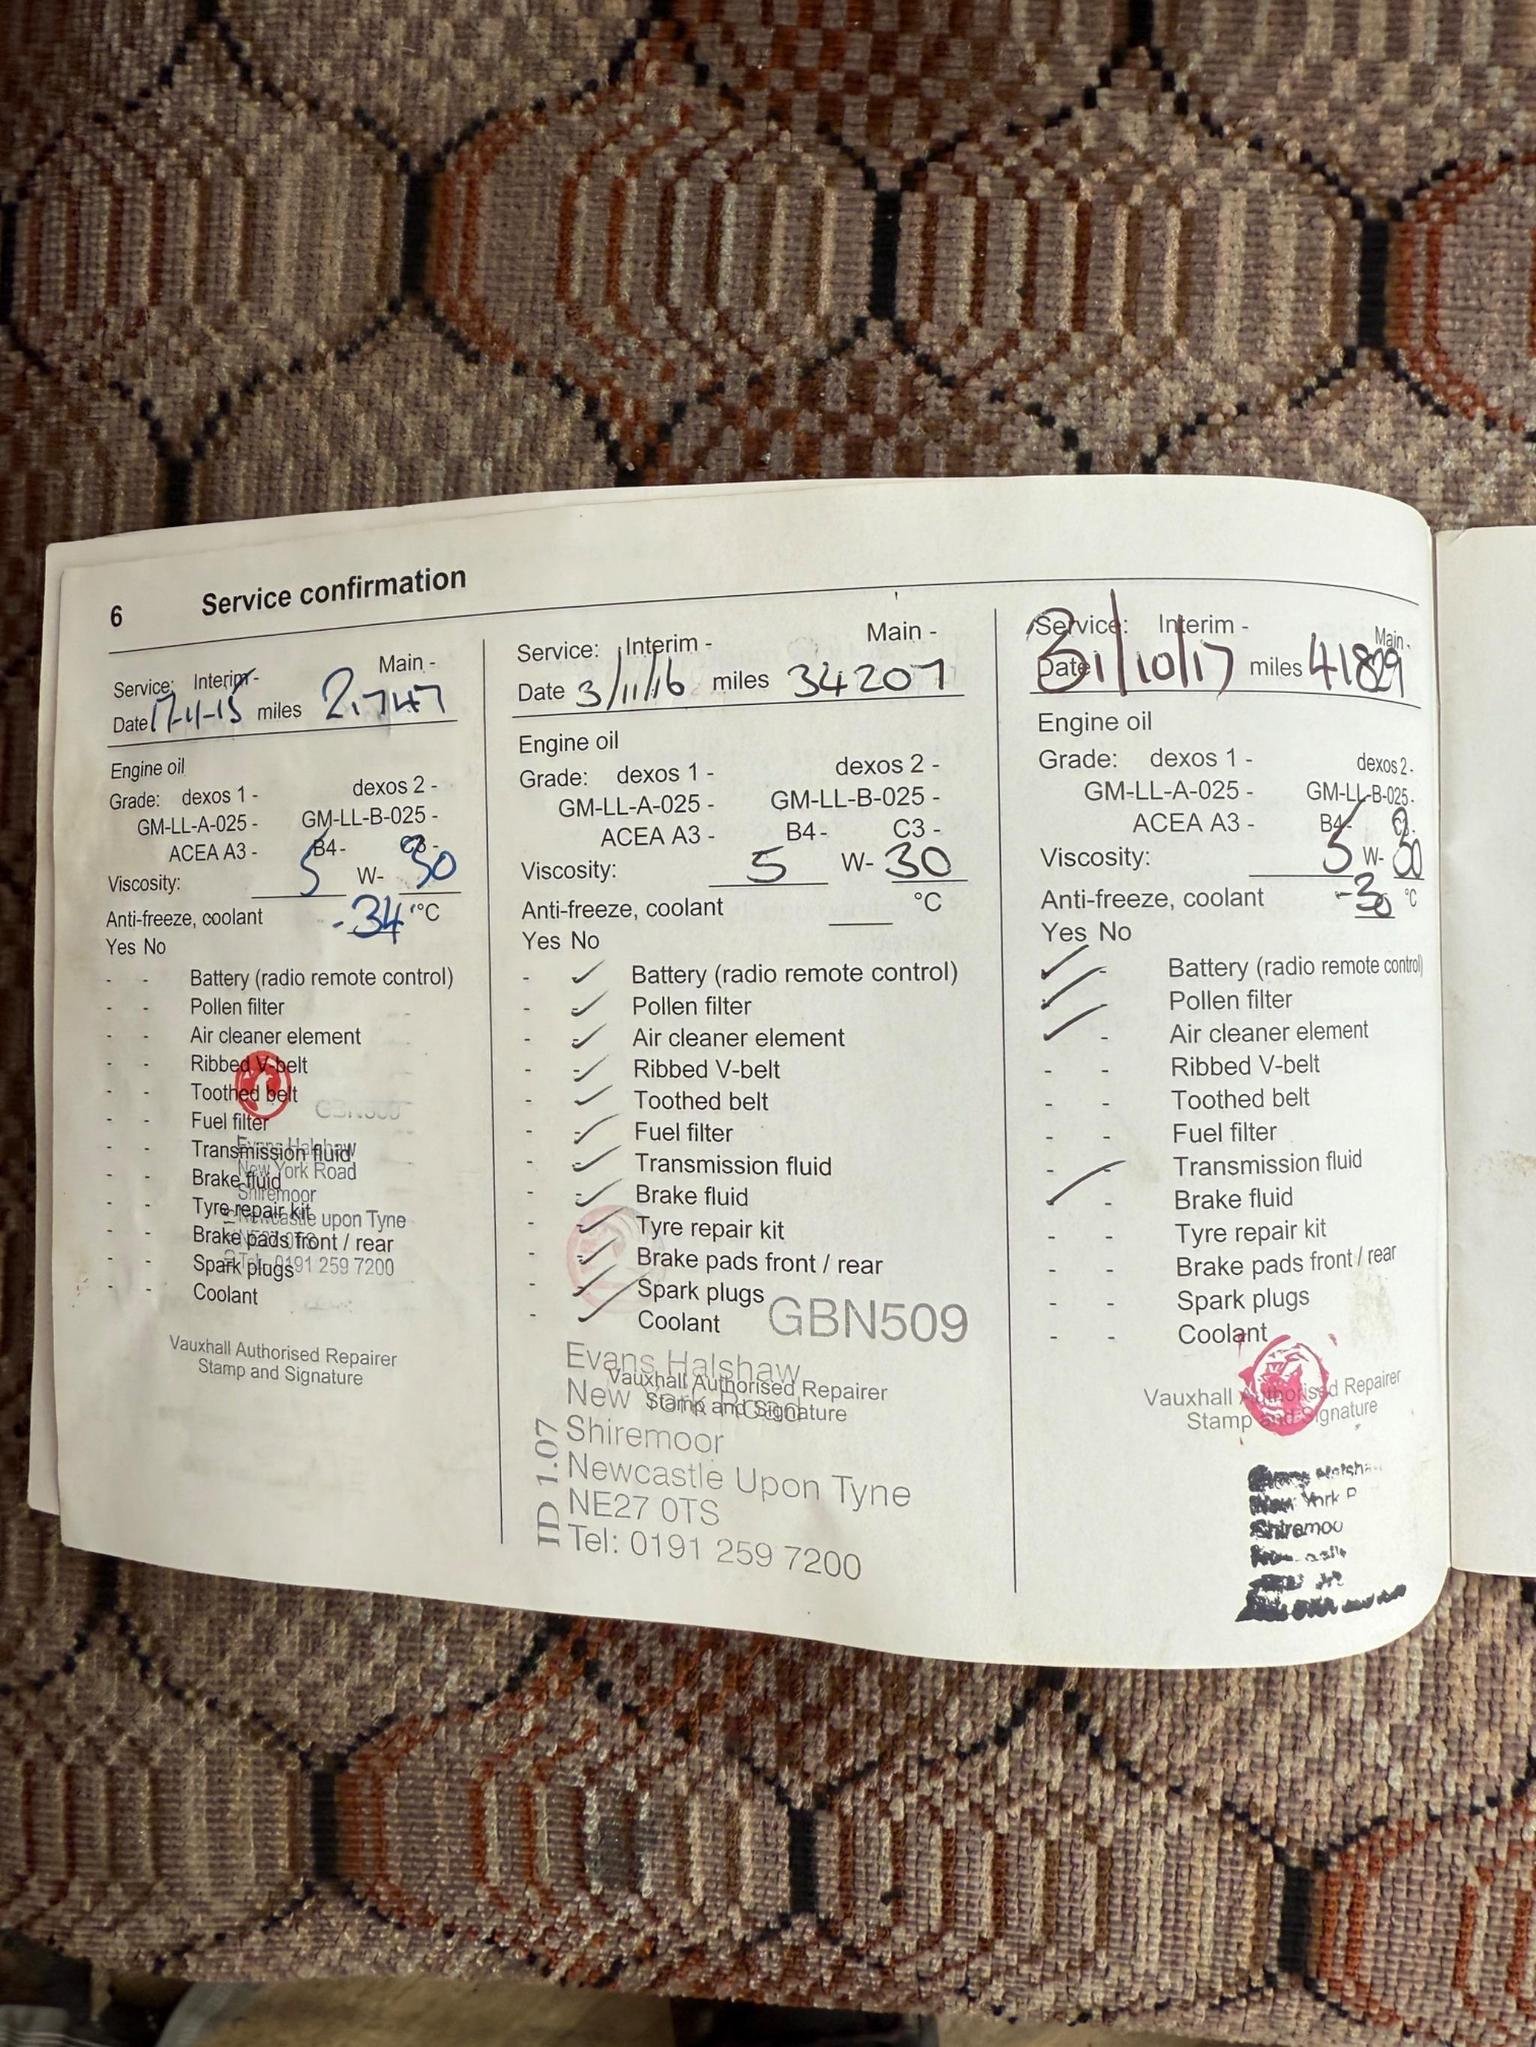 6 Service confirmation
Service: Interim - Main -
Date 17-11-15 miles
Engine oil
Grade: dexos 1 - dexos 2 -
GM-LL-A-025 - GM-LL-B-025 -
ACEA A3 - B4 - C3 -
Viscosity: 5 W- 30
Anti-freeze, coolant -34 °C
Yes No
- - Battery (radio remote control)
- - Pollen filter
- - Air cleaner element
- - Ribbed V-belt
- - Toothed belt
GBN509
- - Fuel filter
Evans Halshaw
- - Transmission fluid
New York Road
- - Brake fluid
Shiremoor
- - Tyre repair kit
Newcastle upon Tyne
- - Brake pads front / rear
NE27 0TS
- - Spark plugs
Tel: 0191 259 7200
- - Coolant
Vauxhall Authorised Repairer
Stamp and Signature
Service: Interim - Main -
Date 3/11/16 miles 34207
Engine oil
Grade: dexos 1 - dexos 2 -
GM-LL-A-025 - GM-LL-B-025 -
ACEA A3 - B4 - C3 -
Viscosity: 5 W- 30
Anti-freeze, coolant °C
Yes No
- ✓ Battery (radio remote control)
- ✓ Pollen filter
- ✓ Air cleaner element
- ✓ Ribbed V-belt
- ✓ Toothed belt
- ✓ Fuel filter
- ✓ Transmission fluid
- ✓ Brake fluid
- ✓ Tyre repair kit
- ✓ Brake pads front / rear
- ✓ Spark plugs
- ✓ Coolant
GBN509
Evans Halshaw
Vauxhall Authorised Repairer
New York Road
Stamp and Signature
Shiremoor
Newcastle Upon Tyne
NE27 0TS
Tel: 0191 259 7200
ID 1.07
Service: Interim - Main -
Date 31/10/17 miles 41829
Engine oil
Grade: dexos 1 - dexos 2 -
GM-LL-A-025 - GM-LL-B-025 -
ACEA A3 - B4 - C3 -
Viscosity: 5 W- 30
Anti-freeze, coolant -30 °C
Yes No
✓ - Battery (radio remote control)
✓ - Pollen filter
✓ - Air cleaner element
- - Ribbed V-belt
- - Toothed belt
- - Fuel filter
- - Transmission fluid
✓ - Brake fluid
- - Tyre repair kit
- - Brake pads front / rear
- - Spark plugs
- - Coolant
Vauxhall Authorised Repairer
Stamp and Signature
York
Shiremoo